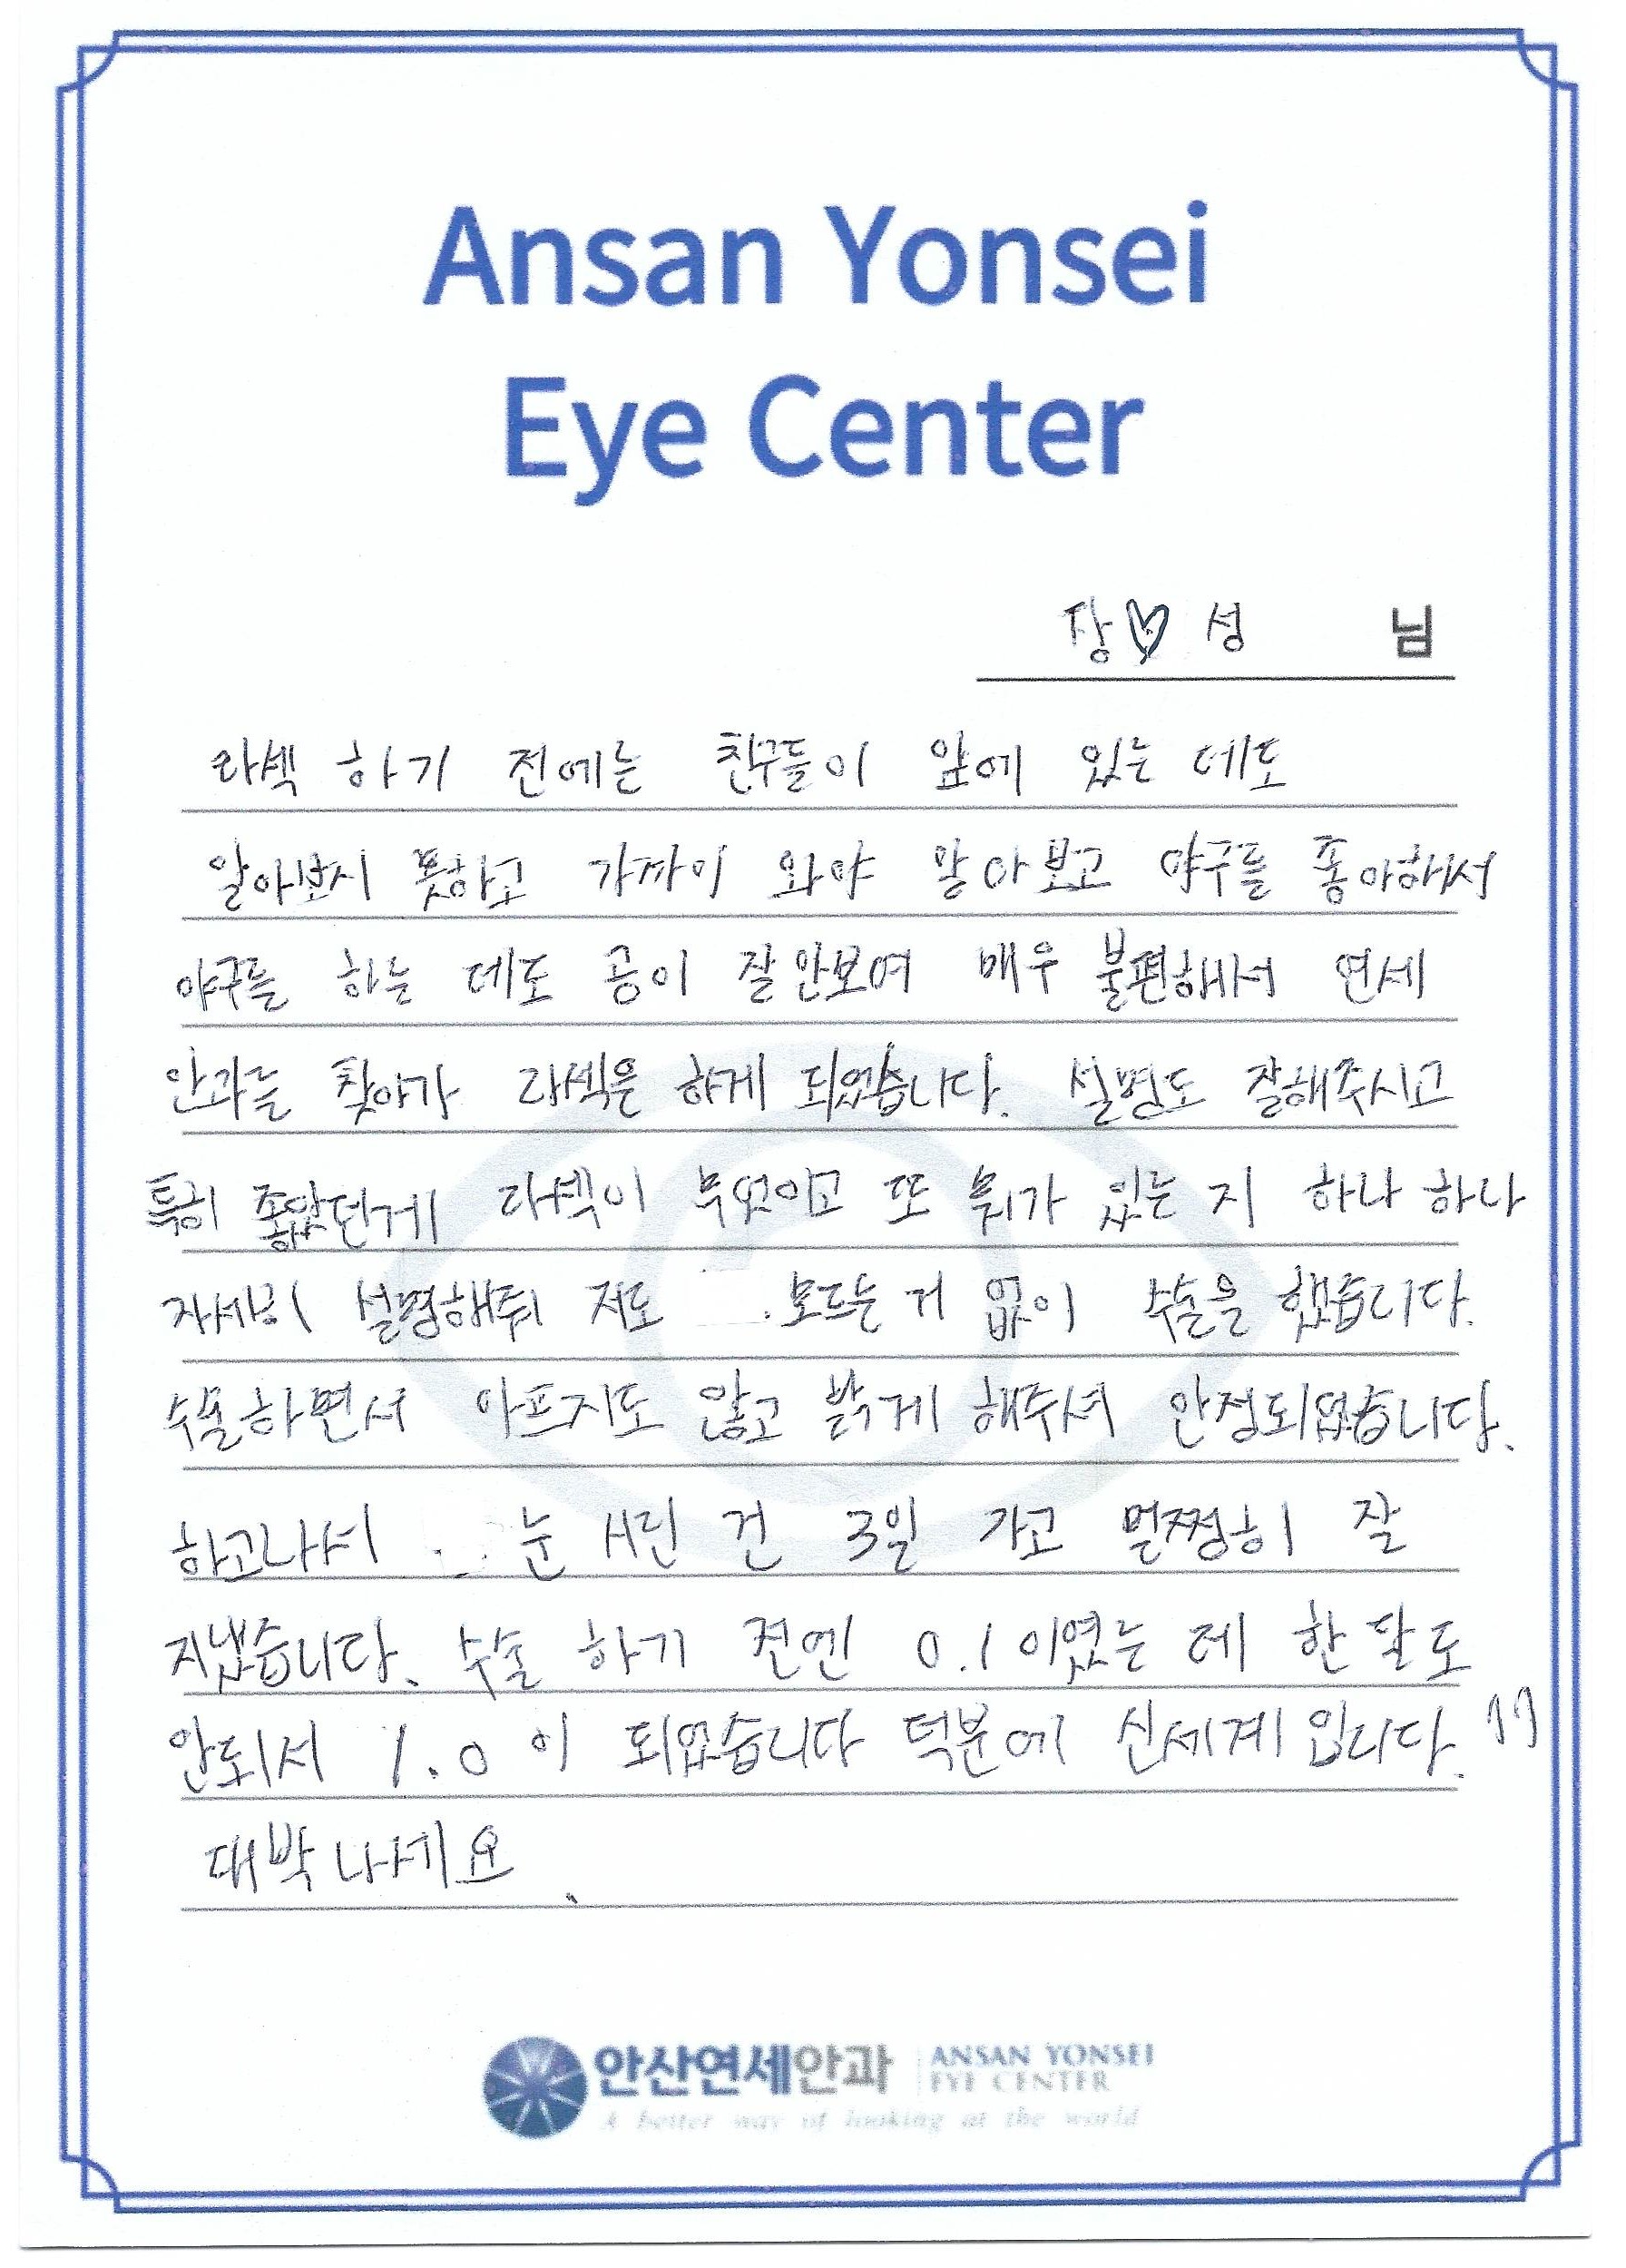 Ansan Yonsei
Eye Center
장♡성 님
라섹 하기 전에는 친구들이 앞에 있는 데도
알아보지 못하고 가까이 와야 알아보고 야구를 좋아해서
야구를 하는 데도 공이 잘안보여 매우 불편해서 연세
안과를 찾아가 라섹은 하게 되었습니다. 설명도 잘해주시고
특히 좋았던게 라섹이 무엇이고 또 뭐가 있는 지 하나 하나
자세히 설명해줘 저도 모드는 거 없이 수술을 했습니다.
수술하면서 아프지도 않고 밝게 해주셔 안정되었습니다.
하고나서 눈 시린 건 3일 가고 멀쩡히 잘
지냈습니다. 수술 하기 전엔 0.1이였는 데 한달도
안되서 1.0이 되었습니다 덕분에 신세계입니다.
대박나세요.
안산연세안과 ANSAN YONSEI
EYE CENTER
A better way of looking at the world